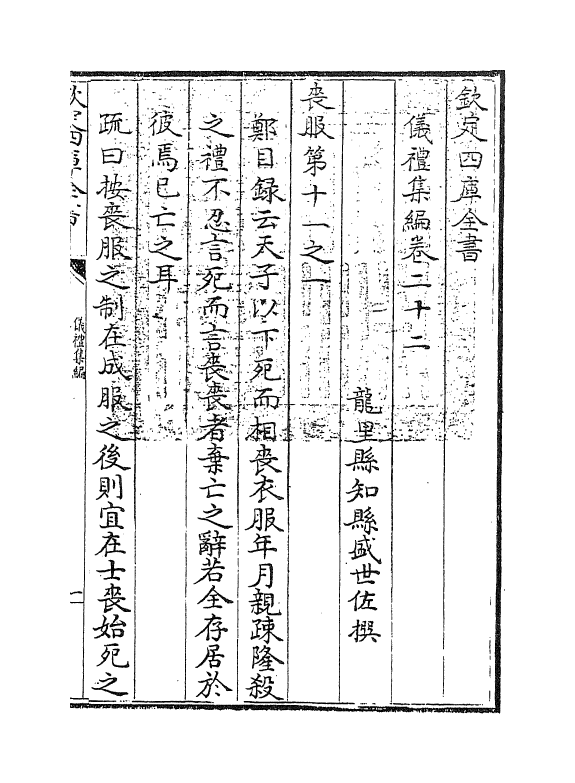 欽定四庫全書
儀禮集編卷二十二
龍里縣知縣盛世佐撰
喪服第十一之一
鄭目録云天子以下死而相喪衣服年月親疎隆殺
之禮不忍言死而言喪喪者棄亡之辭若全存居於
彼焉已亡之耳
疏曰按喪服之制在成服之後則宜在士喪始死之
欽定四庫全書
儀禮集編